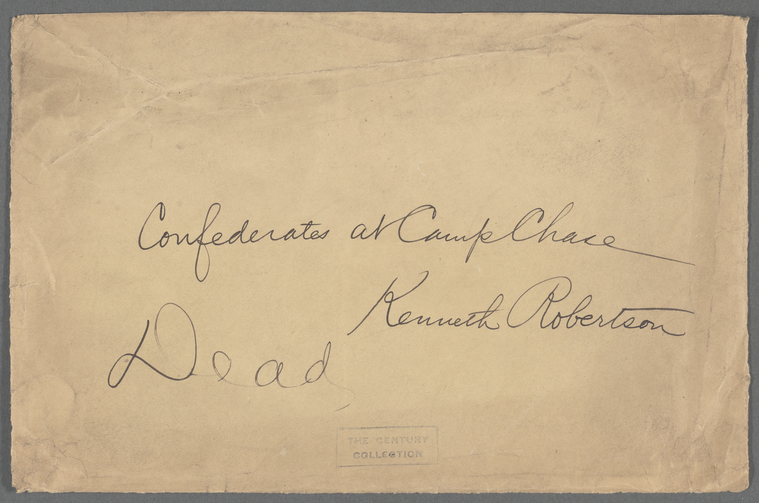 Confederates at Camp Chase
Kenneth Robertson
Dead
THE CENTURY
COLLECTION